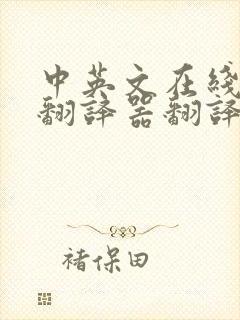 中英文在线
翻译器翻译
褚保田